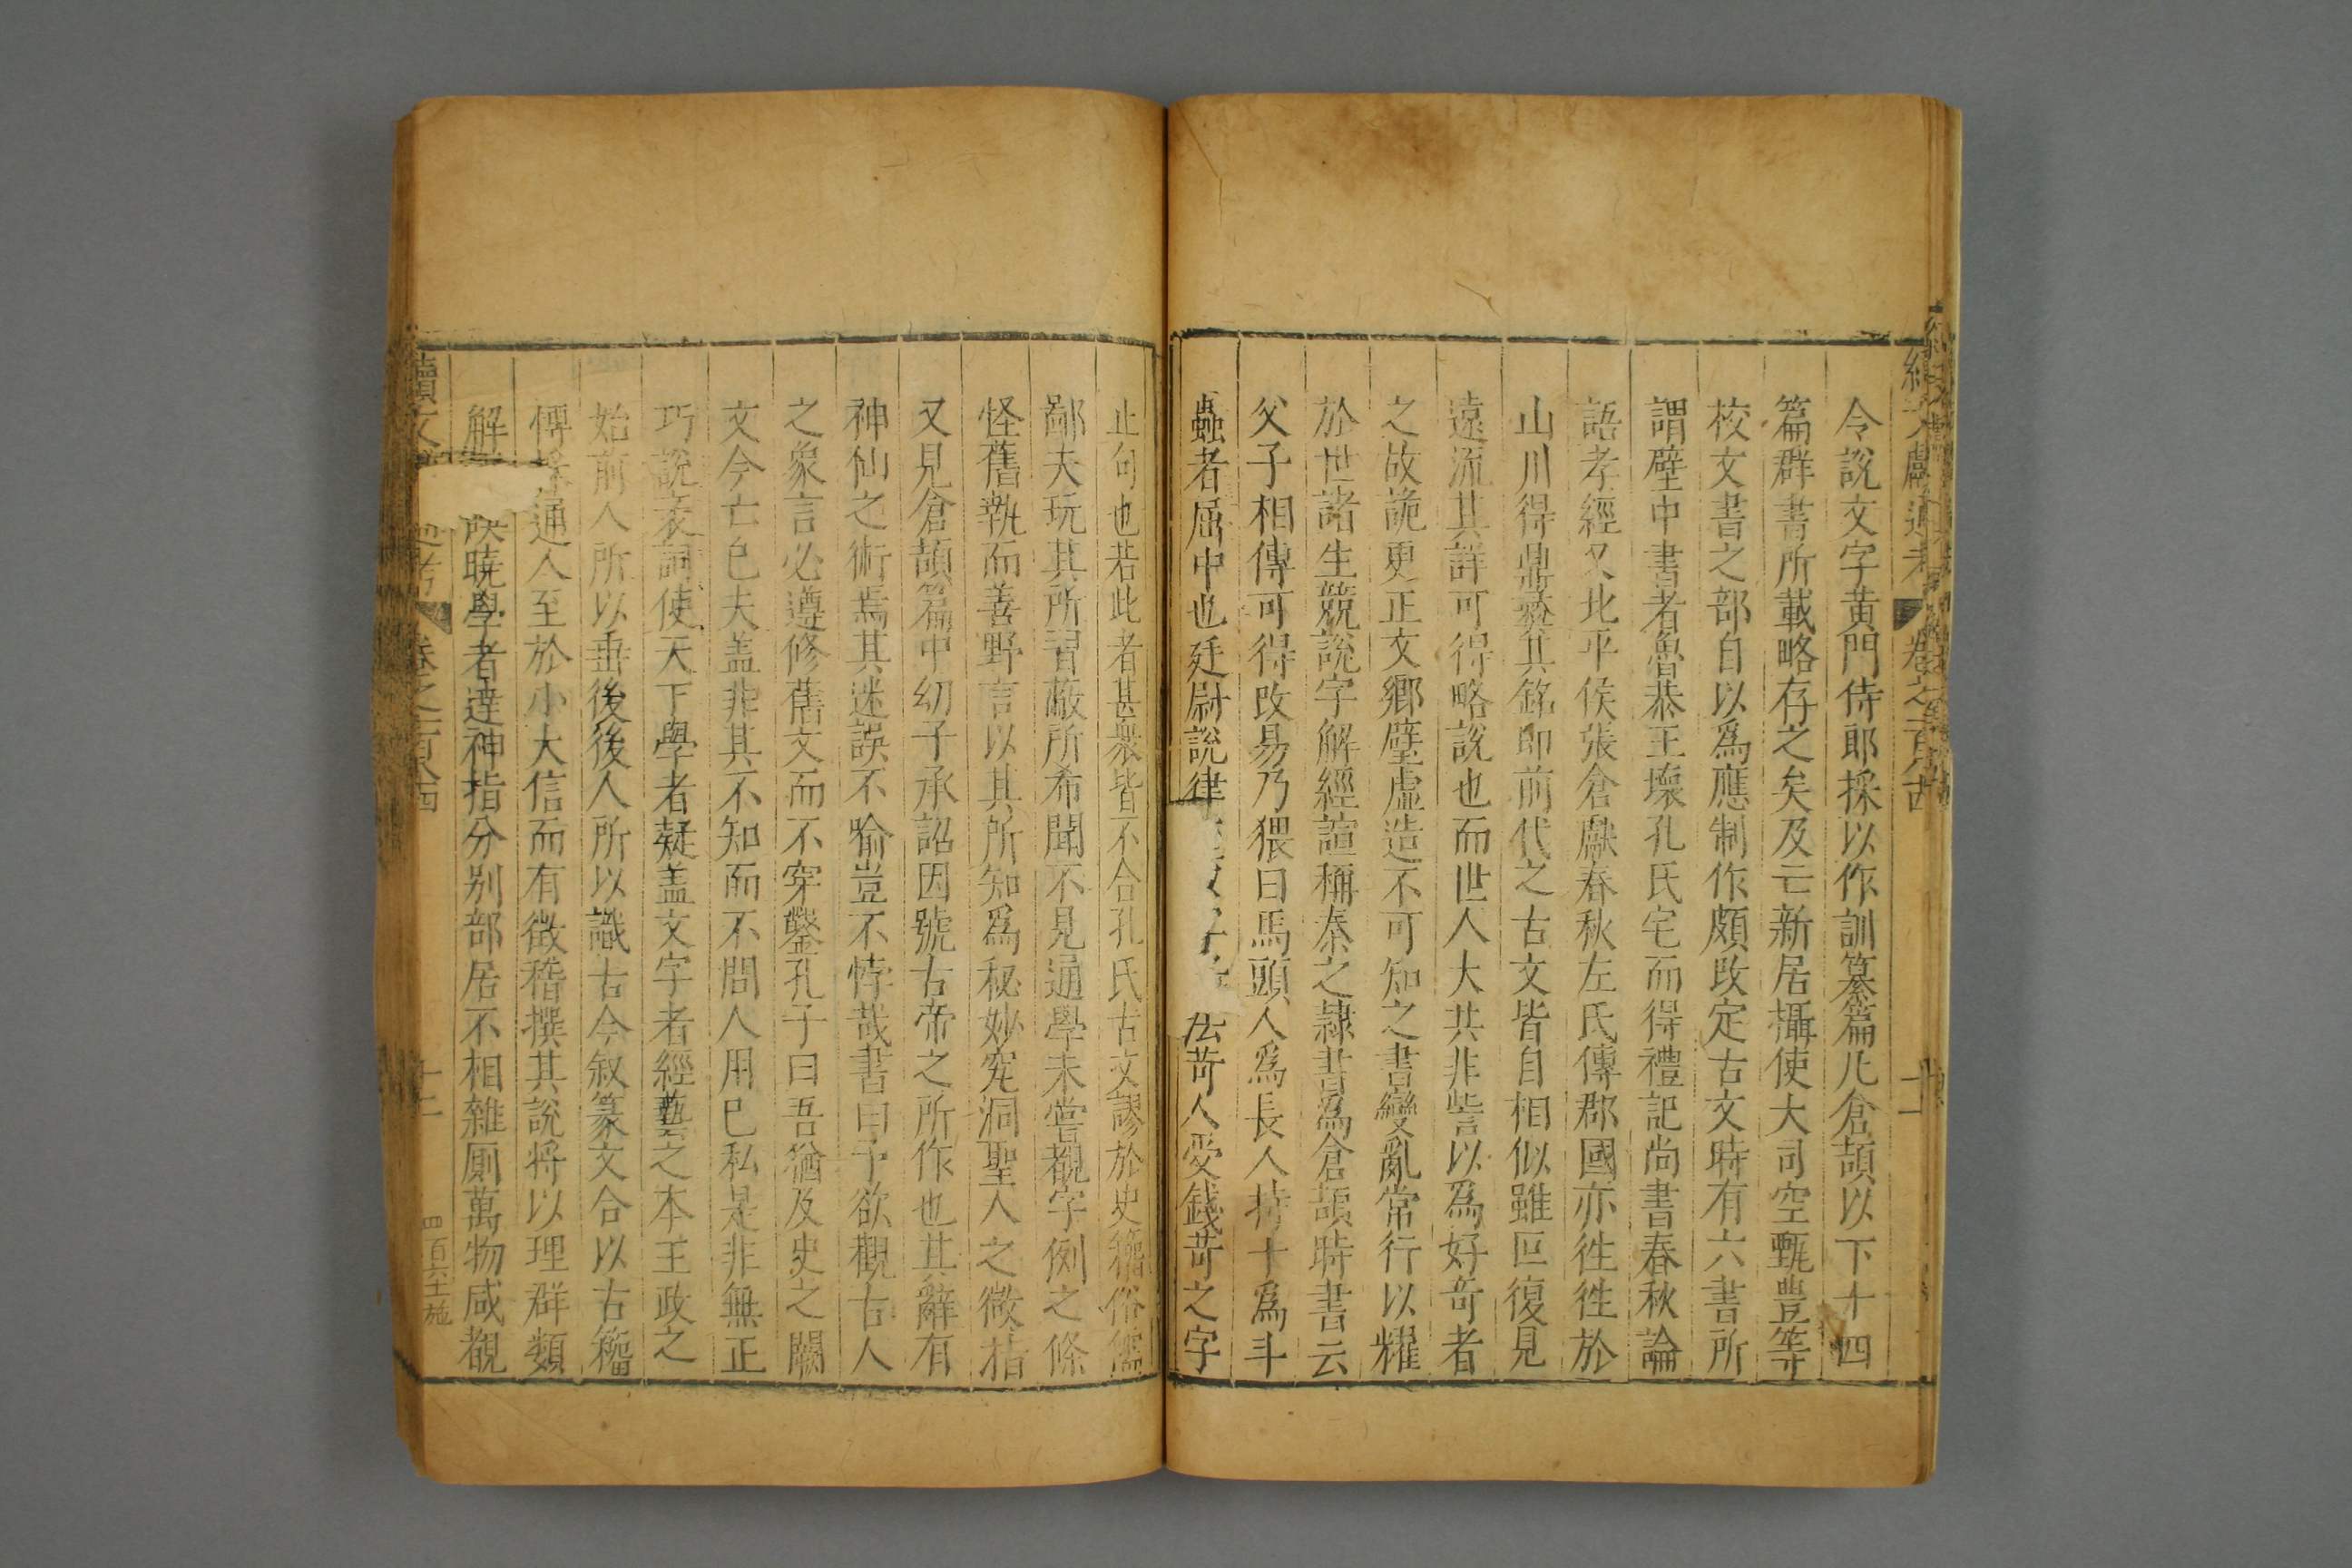 令說文字黃門侍郎採以作訓纂篇凡倉頡以下十四
篇群書所載略存之矣及亡新居攝使大司空甄豐等
校文書之部自以爲應制作頗改定古文時有六書所
謂壁中書者魯恭王壞孔氏宅而得禮記尚書春秋論
語孝經又北平侯張倉獻春秋左氏傳郡國亦徃徃於
山川得鼎彝其銘即前代之古文皆自相似雖叵復見
遠流其詳可得略說也而世人大共非訾以爲好奇者
之故詭更正文鄉壁虛造不可知之書變亂常行以耀
於世諸生競說字解經諠稱秦之隸書爲倉頡時書云
父子相傳可得改易乃猥曰馬頭人爲長人持十爲斗
蟲者屈中也廷尉說律 法苛人受錢苛之字
止句也若此者甚衆皆不合孔氏古文謬於史籀俗儒
鄙夫玩其所習蔽所希聞不見通學未嘗覩字例之條
怪舊執而善野言以其所知爲秘妙究洞聖人之微恉
又見倉頡篇中幼子承詔因號古帝之所作也其辭有
神仙之術焉其迷誤不喻豈不悖哉書曰予欲觀古人
之象言必遵修舊文而不穿鑿孔子曰吾猶及史之闕
文今亡已夫盖非其不知而不問人用已私是非無正
巧說衺詞使天下學者疑盖文字者經藝之本王政之
始前人所以垂後後人所以識古今叙篆文合以古籀
愽 通人至於小大信而有徴稽撰其說將以理群類
解 曉學者達神指分别部居不相雜厠萬物咸覩
續文 通考 卷之一百八四
十二
四百六十 施